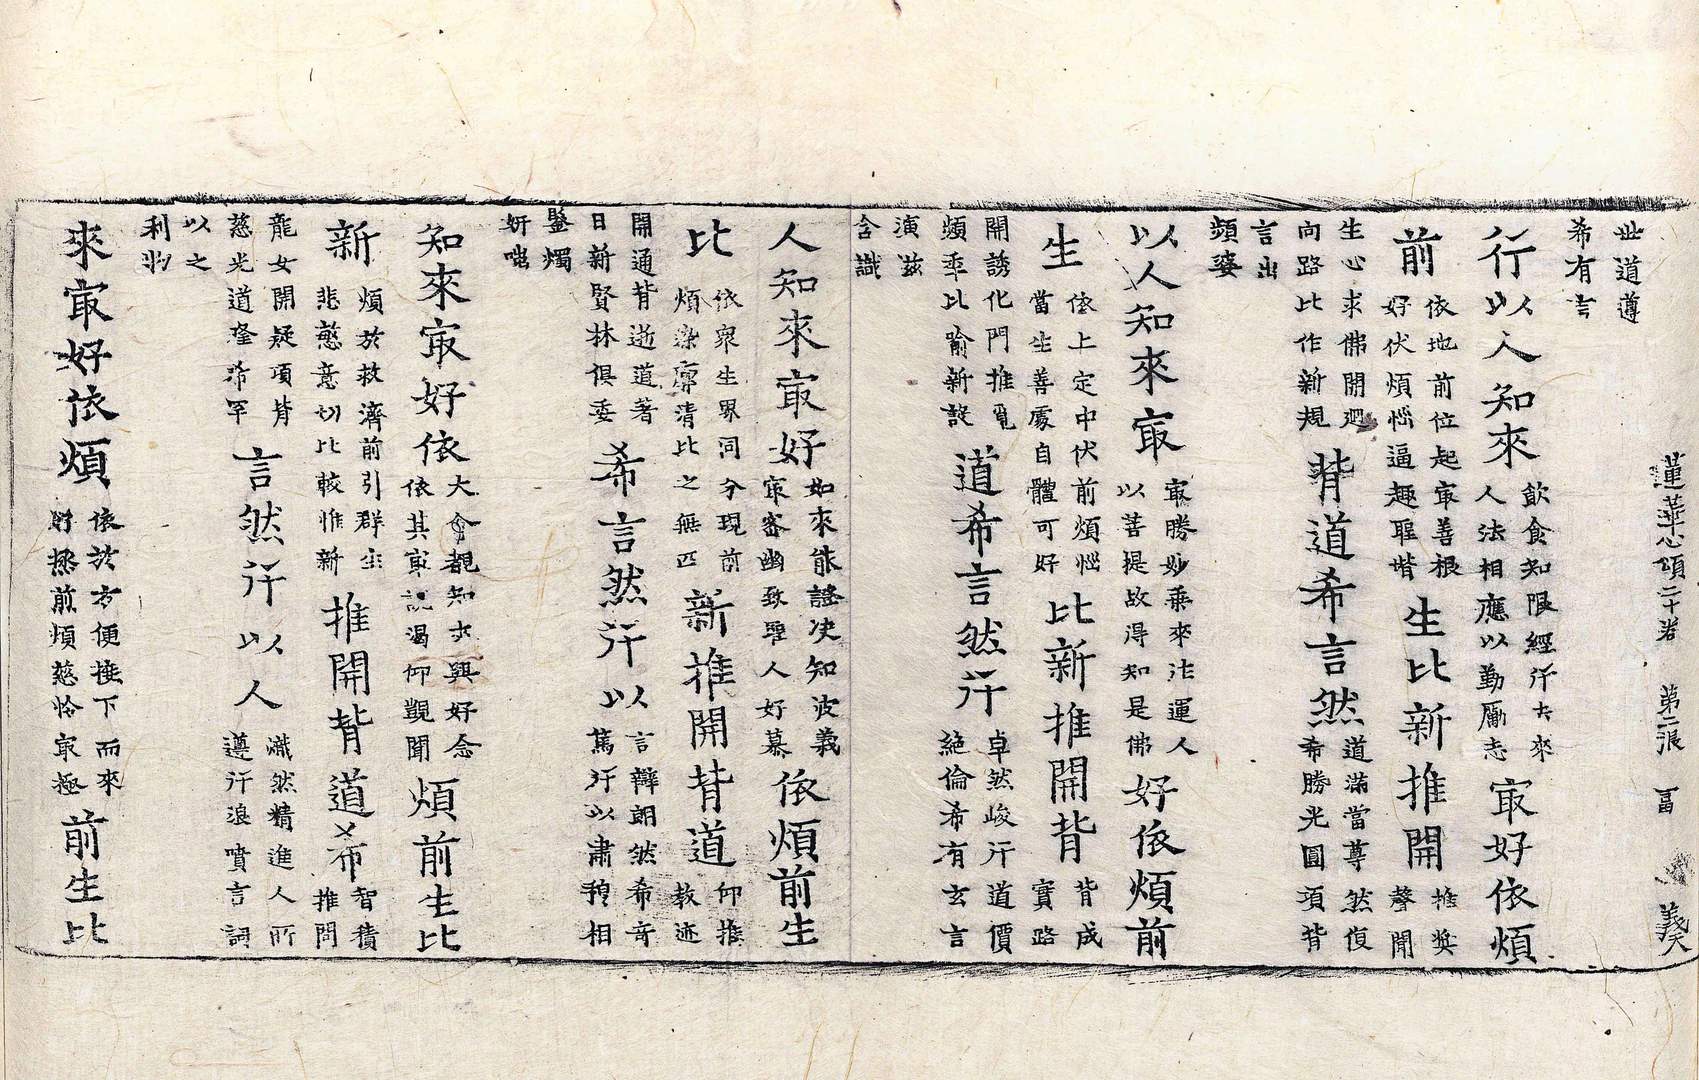 蓮華心頌二十卷　第二張　冨
世道遵
希有言
行以人知來
飲食知限經行去來
人法相應以勤勵志
㝡好依煩
前
依地前位起㝡善根
好伏煩惱逼趣聖階
生比新推開
推奬
聲聞
生心求佛開迴
向路比作新規
背道希言然
道滿當尊然復
希勝光圓項背
言出
頻婆
以人知來㝡
㝡勝妙乘來法運人
以菩提故得知是佛
好依煩前
生
依上定中伏前煩惱
當生善處自體可好
比新推開背
背成
實路
開誘化門推覓
煩乖比喻新設
道希言然行
卓然峻行道價
絶倫希有玄言
演茲
含識
人知來㝡好
如來能證决知波義
㝡審幽致聖人好慕
依煩前生
比
依衆生界同分現前
煩染廓清比之無匹
新推開背道
仰推
教迹
開通背逝道著
日新賢林俱委
希言然行以
言辯朗然希奇
篤行以肅預相
鑒燭
妍嗤
知來㝡好依
大會覩知求興好念
依其㝡說渴仰觀聞
煩前生比
新
煩於救濟前引群生
悲慜意切比較惟新
推開背道希
智積
推問
龍女開疑項背
慈光道隆希罕
言然行以人
熾然精進人所
遵行浪噴言詞
以之
利物
來㝡好依煩
依於方便接下而來
好 前煩慈怜㝡極
前生比